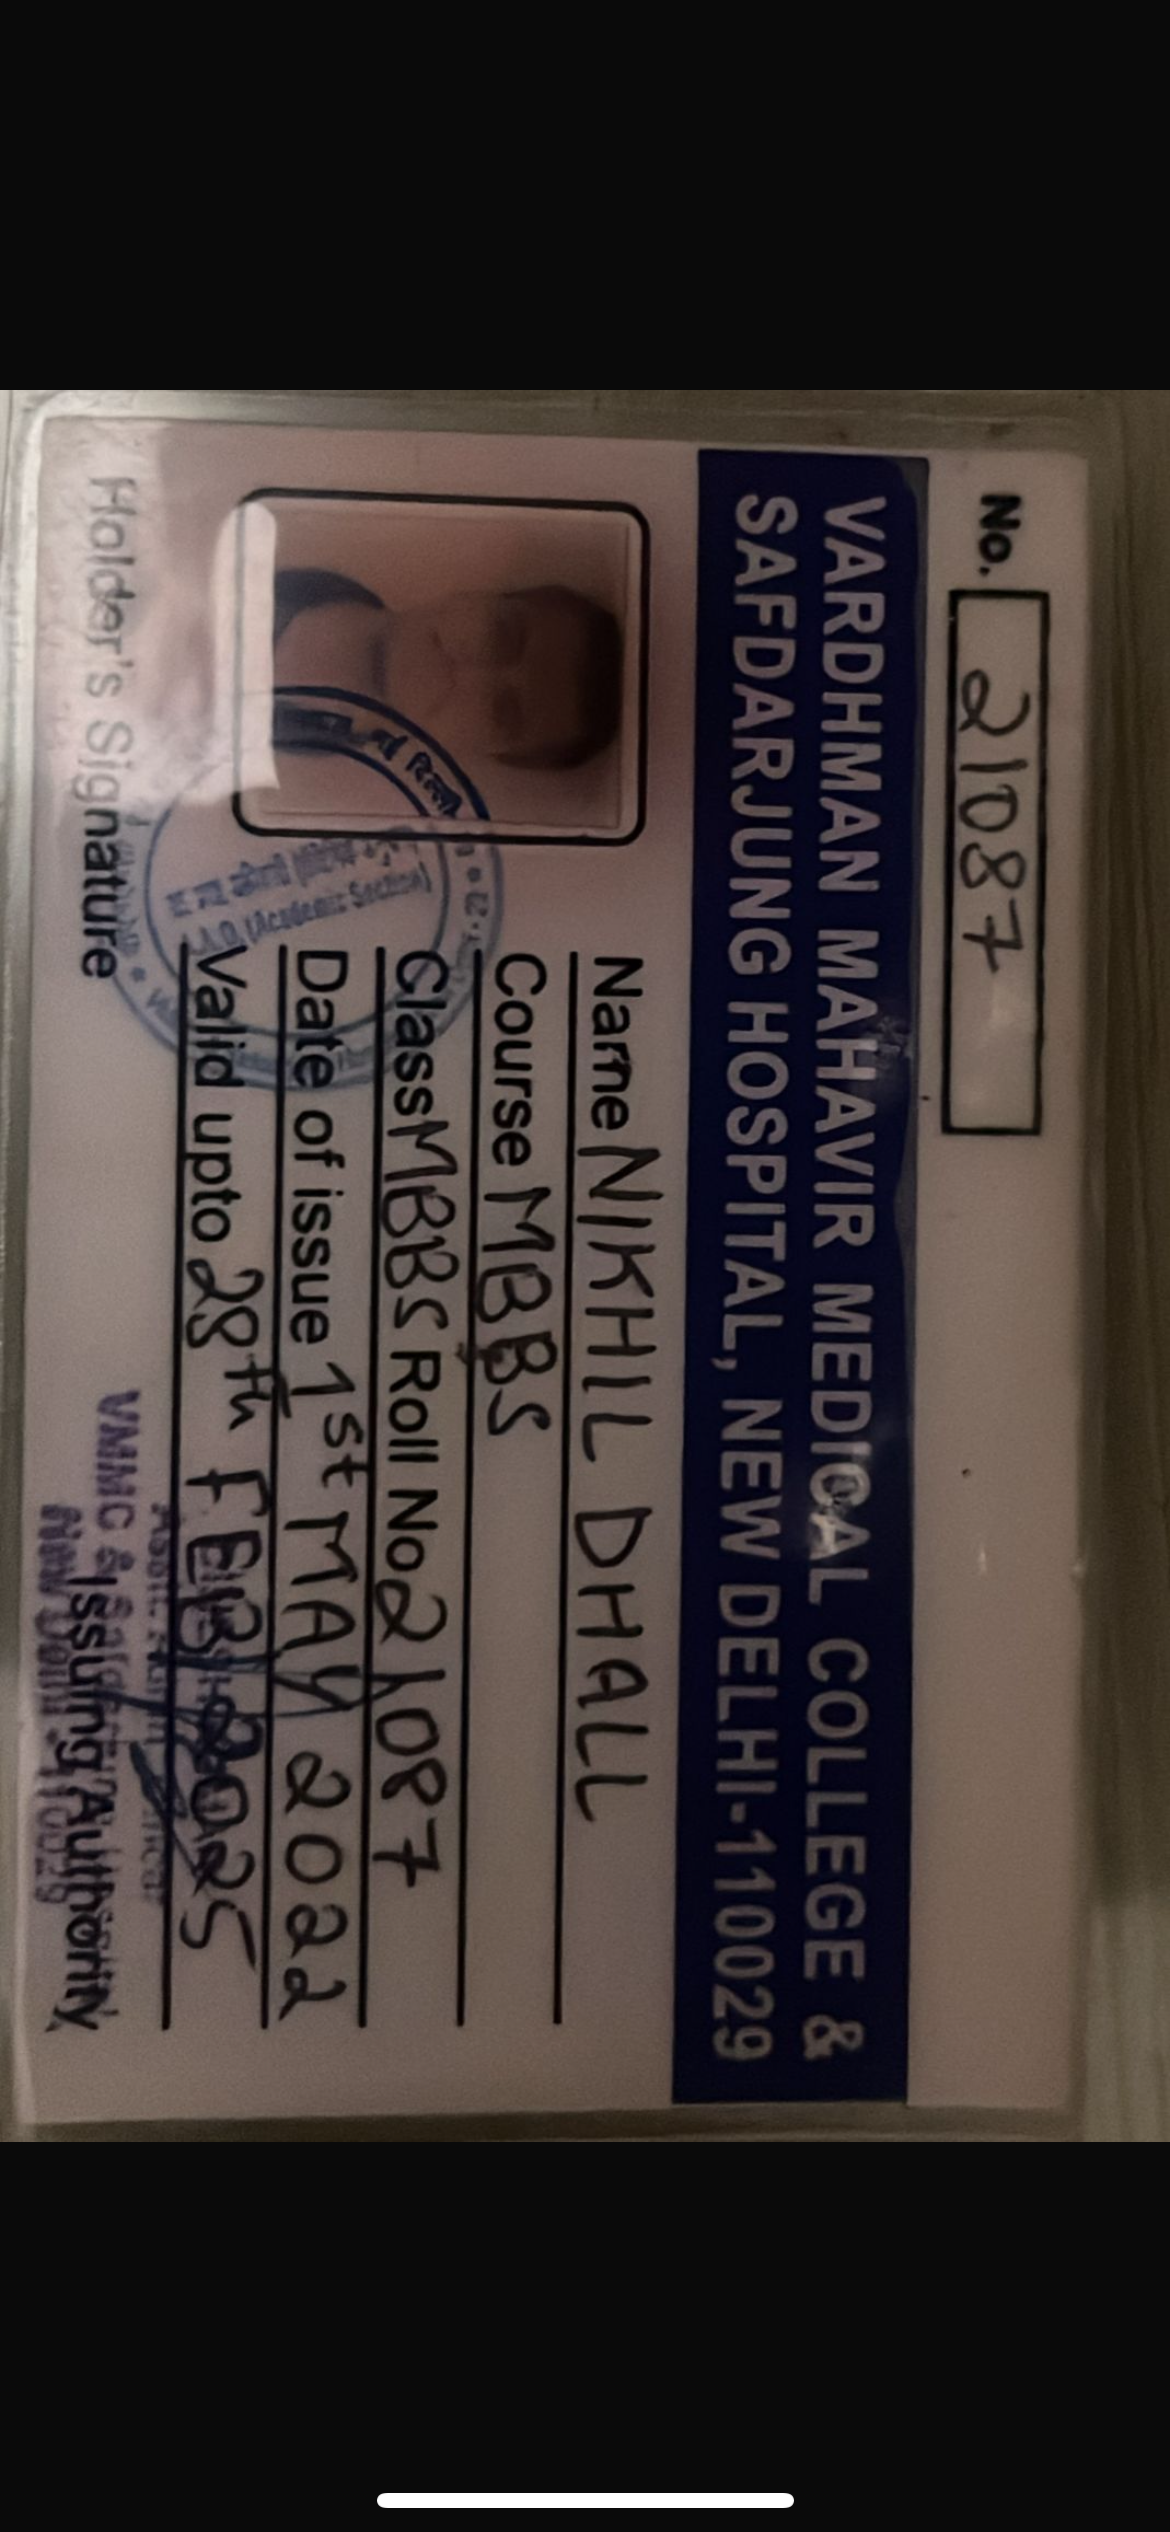 No. 21087
VARDHMAN MAHAVIR MEDICAL COLLEGE &
SAFDARJUNG HOSPITAL, NEW DELHI-110029
Name NIKHIL DHALL
Course MBBS
Class MBBS Roll No 21087
Date of issue 1st MAY 2022
Valid upto 28th FEB 2025
(Academic Section)
VMMC &
Holder's Signature
Issuing Authority